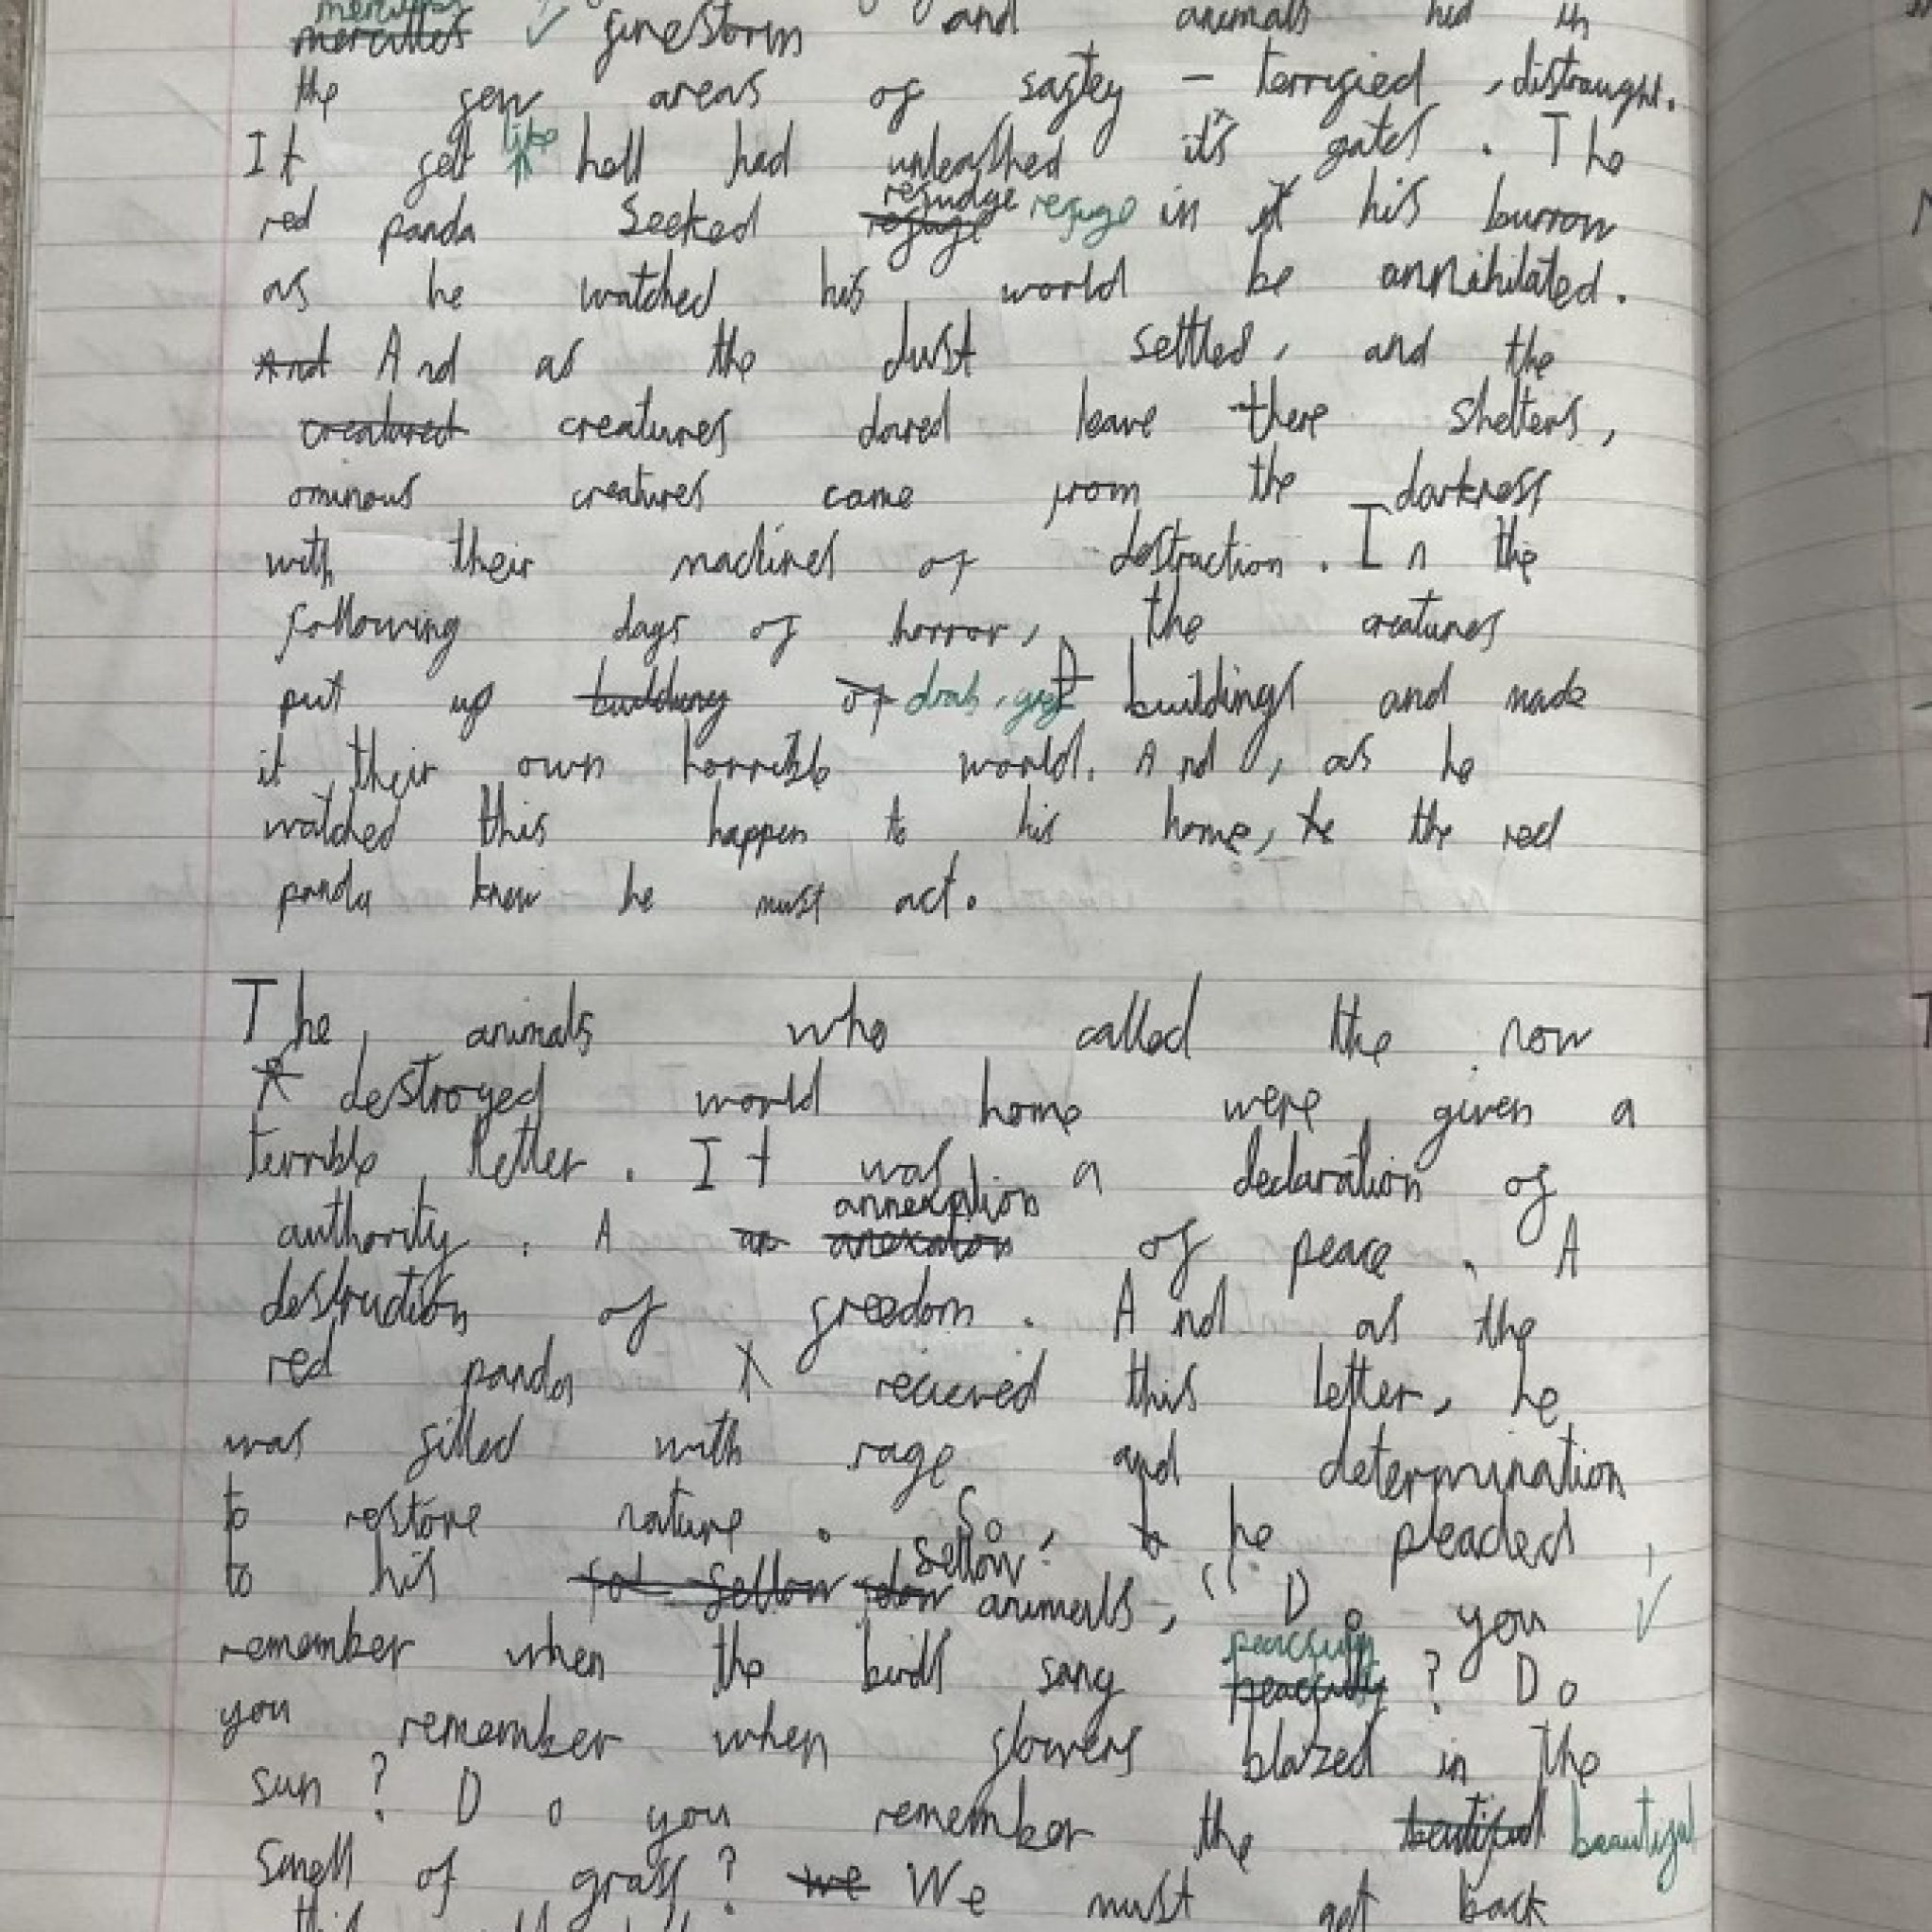 merciless
merciless firestorm and animals hid in
the few areas of saftey – terrified, distraught.
It felt like hell had unleashed it's gates. The
red panda seeked refuge refudge refuge in it his burrow
as he watched his world be annihilated.
And And as the dust settled, and the
creatured creatures dared leave there shelters,
ominous creatures came from the darkness
with their machines of destruction. In the
following days of horror, the creatures
put up building of drab, grey buildings and made
it their own horrible world. And, as he
watched this happen to his home, he the red
panda knew he must act.
The animals who called the now
destroyed world home were given a
terrible letter. It was a declaration of
authority. A an anexation annexation of peace. A
destruction of freedom. And as the
red panda recieved this letter, he
was filled with rage and determination
to restore nature. So, he pleaded
to his fellow fellow animals, "Do you
remember when the birds sang peacfully peacfully? Do
you remember when flowers blazed in the
sun? Do you remember the beutiful beautiful
smell of grass? we We must get back